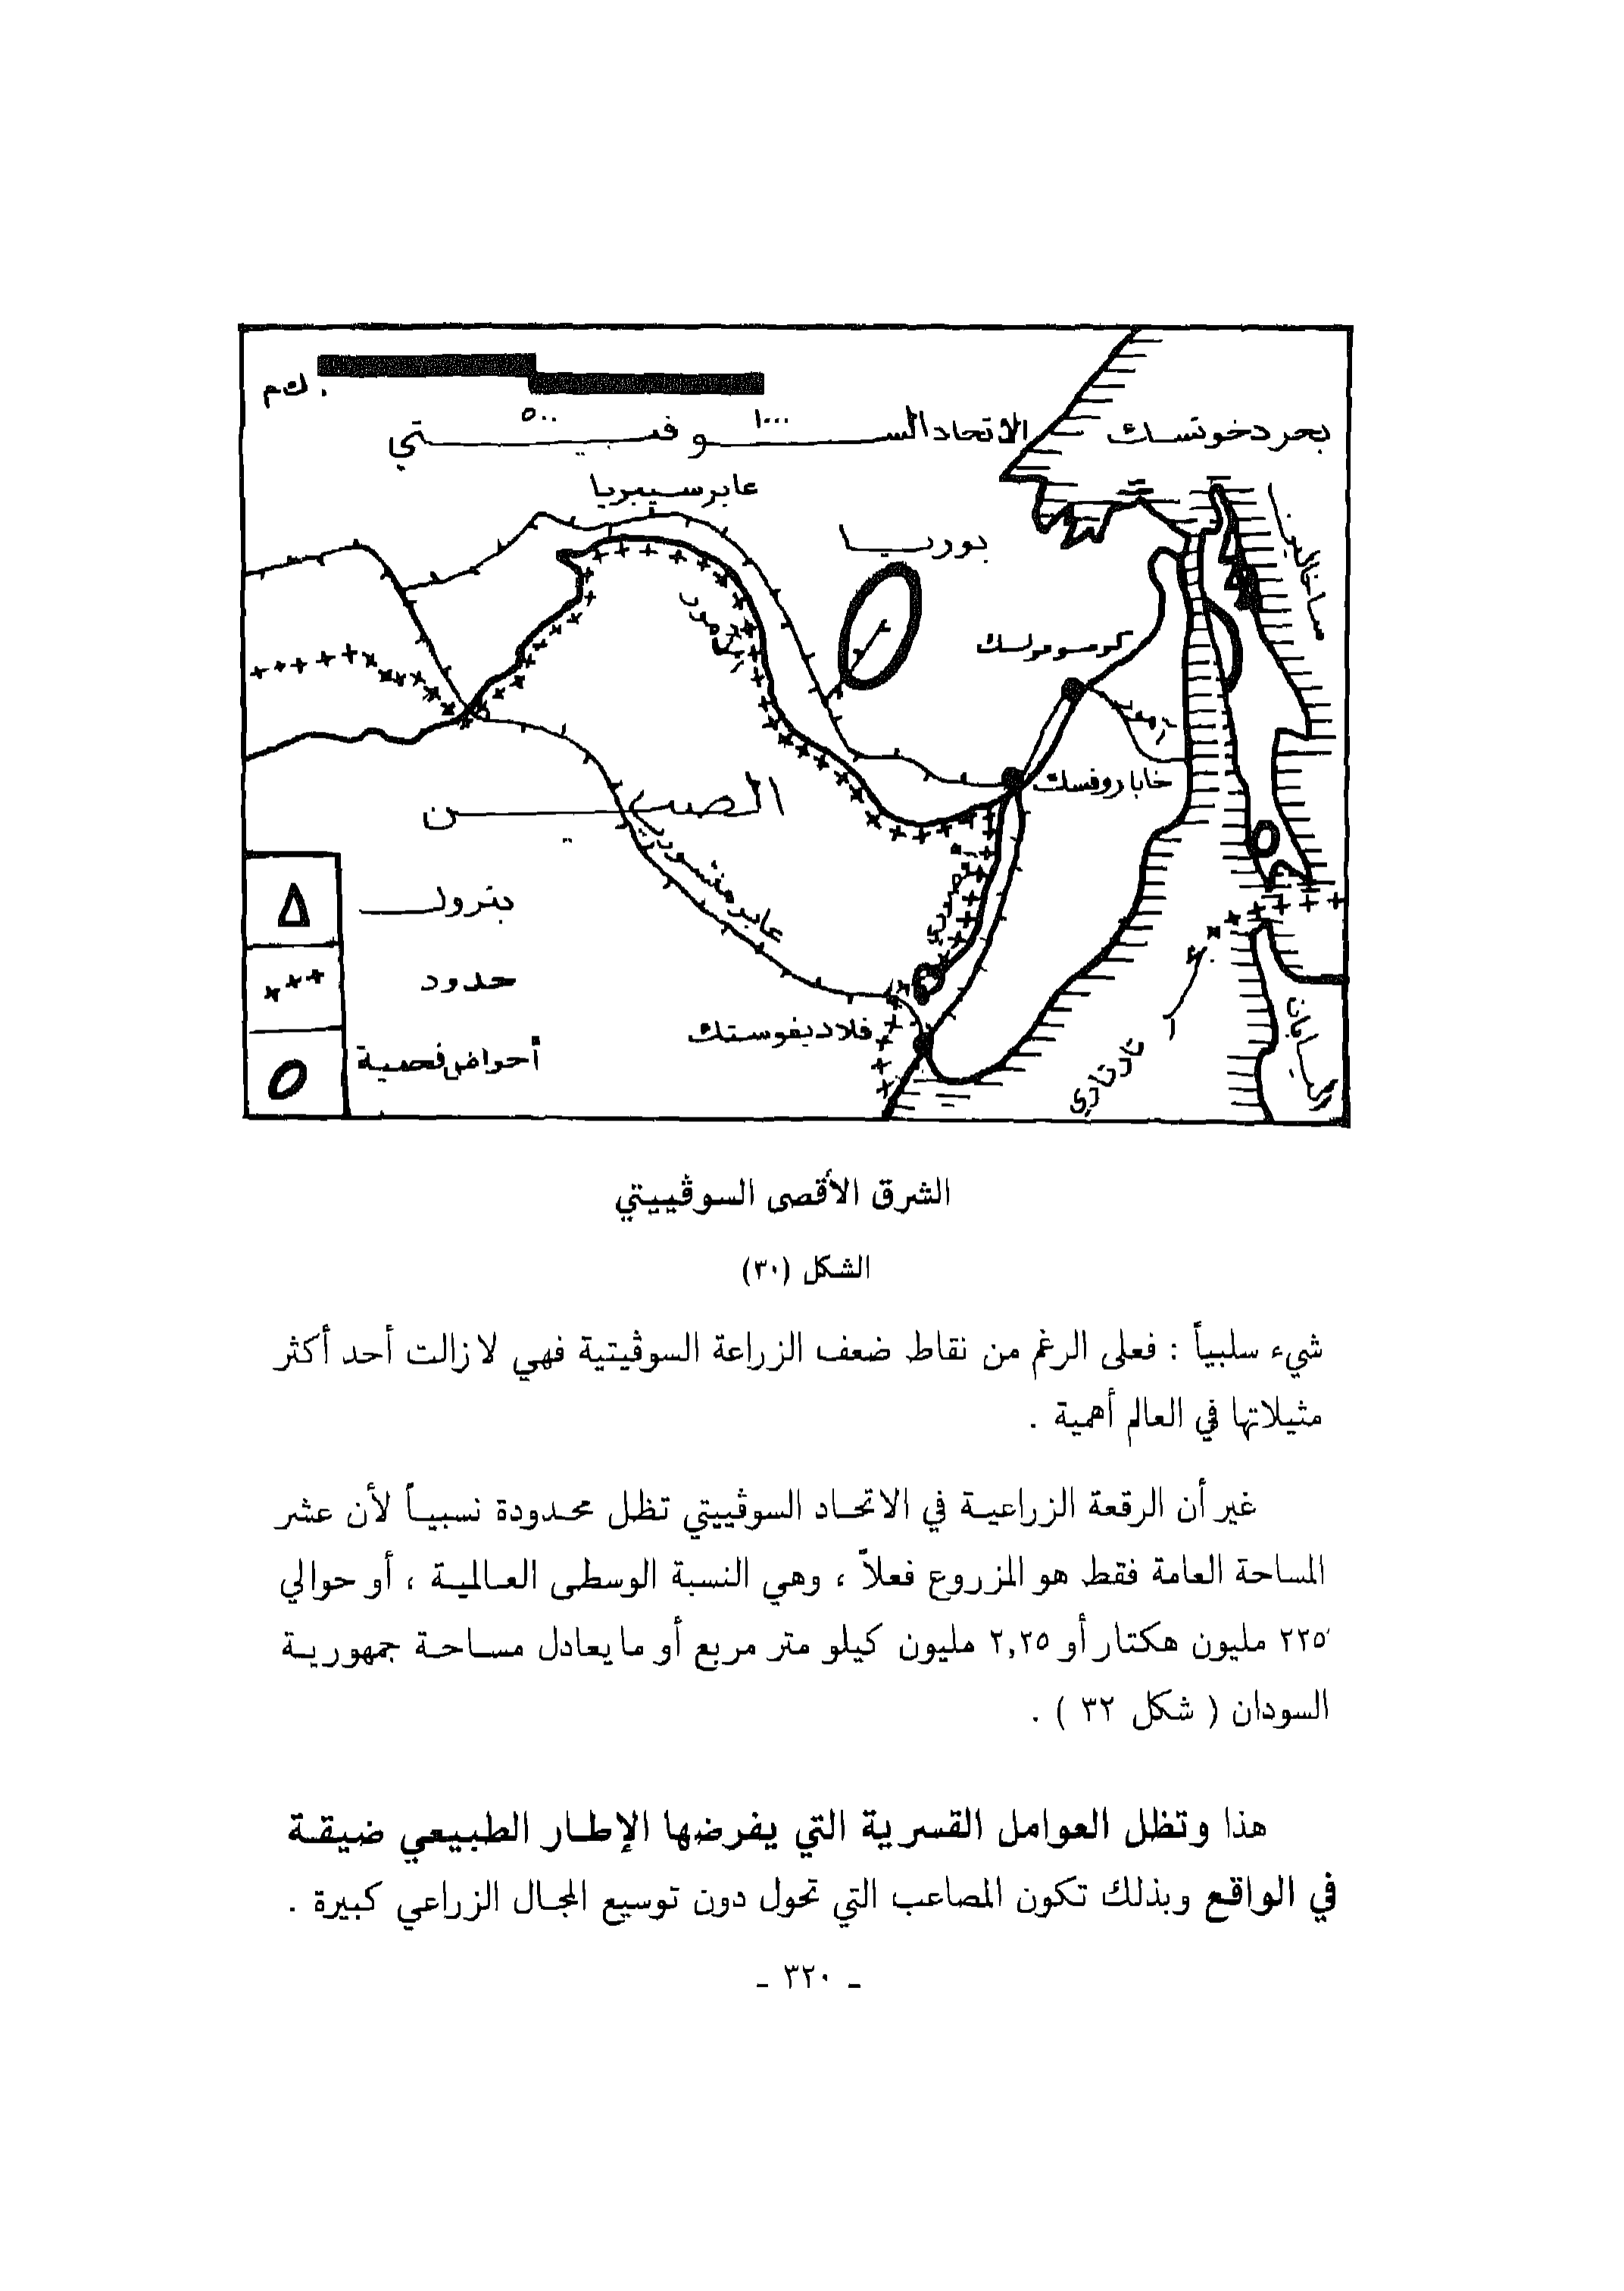 ٠ ك م
٥٠٠
١٠٠٠
الاتحاد السوفيتي
بحر دخوتسك
عابر سيبريا
بوريا
ساخالين
آمور
كومسومولسك
آمور
خاباروفسك
الصين
عابر منشوريا
بترول
حدود
أحواض فحمية
فلاديفوستك
تارتاري
اليابان
الشرق الأقصى السوڤييتي
الشكل (٣٠)
شيء سلبياً : فعلى الرغم من نقاط ضعف الزراعة السوڤيتية فهي لا زالت أحد أكثر
مثيلاتها في العالم أهمية .
غير أن الرقعة الزراعية في الاتحاد السوڤييتي تظل محدودة نسبياً لأن عشر
المساحة العامة فقط هو المزروع فعلاً ، وهي النسبة الوسطى العالمية ، أو حوالي
٢٢٥ مليون هكتار أو ٢,٢٥ مليون كيلو متر مربع أو ما يعادل مساحة جمهورية
السودان ( شكل ٣٢ ) .
هذا وتظل العوامل القسرية التي يفرضها الإطار الطبيعي ضيقة
في الواقع وبذلك تكون المصاعب التي تحول دون توسيع المجال الزراعي كبيرة .
ـ ٣٢٠ ـ